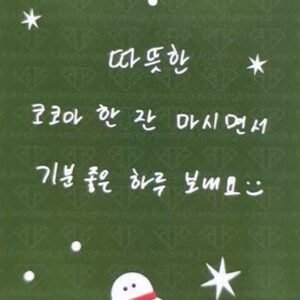 따뜻한
코코아 한 잔 마시면서
기분 좋은 하루 보내요:)